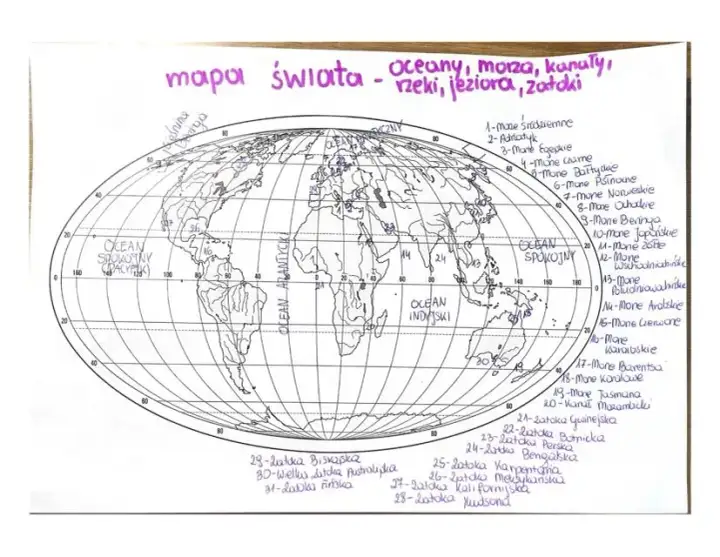 mapa świata - oceany, morza, kanały,
rzeki, jeziora, zatoki
Cieśnina Beringa
OCEAN ARKTYCZNY
OCEAN SPOKOJNY (PACYFIK)
OCEAN ATLANTYCKI
OCEAN INDYJSKI
OCEAN SPOKOJNY
1-Morze Śródziemne
2-Adriatyk
3-Morze Egejskie
4-Morze Czarne
5-Morze Bałtyckie
6-Morze Północne
7-Morze Norweskie
8-Morze Ochockie
9-Morze Beringa
10-Morze Japońskie
11-Morze Żółte
12-Morze Wschodniochińskie
13-Morze Południowochińskie
14-Morze Arabskie
15-Morze Czerwone
16-Morze Karaibskie
17-Morze Barentsa
18-Morze Koralowe
19-Morze Tasmana
20-Kanał Mozambicki
21-Zatoka Gwinejska
22-Zatoka Botnicka
23-Zatoka Perska
24-Zatoka Bengalska
25-Zatoka Karpentaria
26-Zatoka Meksykańska
27-Zatoka Kalifornijska
28-Zatoka Hudsona
29-Zatoka Biskajska
30-Wielka Zatoka Australijska
31-Zatoka Fińska